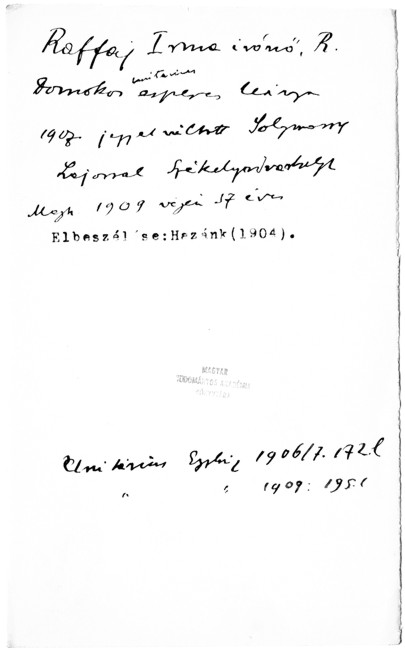 Raffaj Irma írónő, R.
unitárius
Domokos esperes leánya
1907. jegyet váltott Solymossy
Lajossal Székelyudvarhelyt
Megh 1909 végén 37 éves
Elbeszélése:Hazánk(1904).
MAGYAR
TUDOMÁNYOS AKADÉMIA
KÖNYVTÁRA
Unitárius Egyház 1906/7. 172.l
" " 1909: 195.l